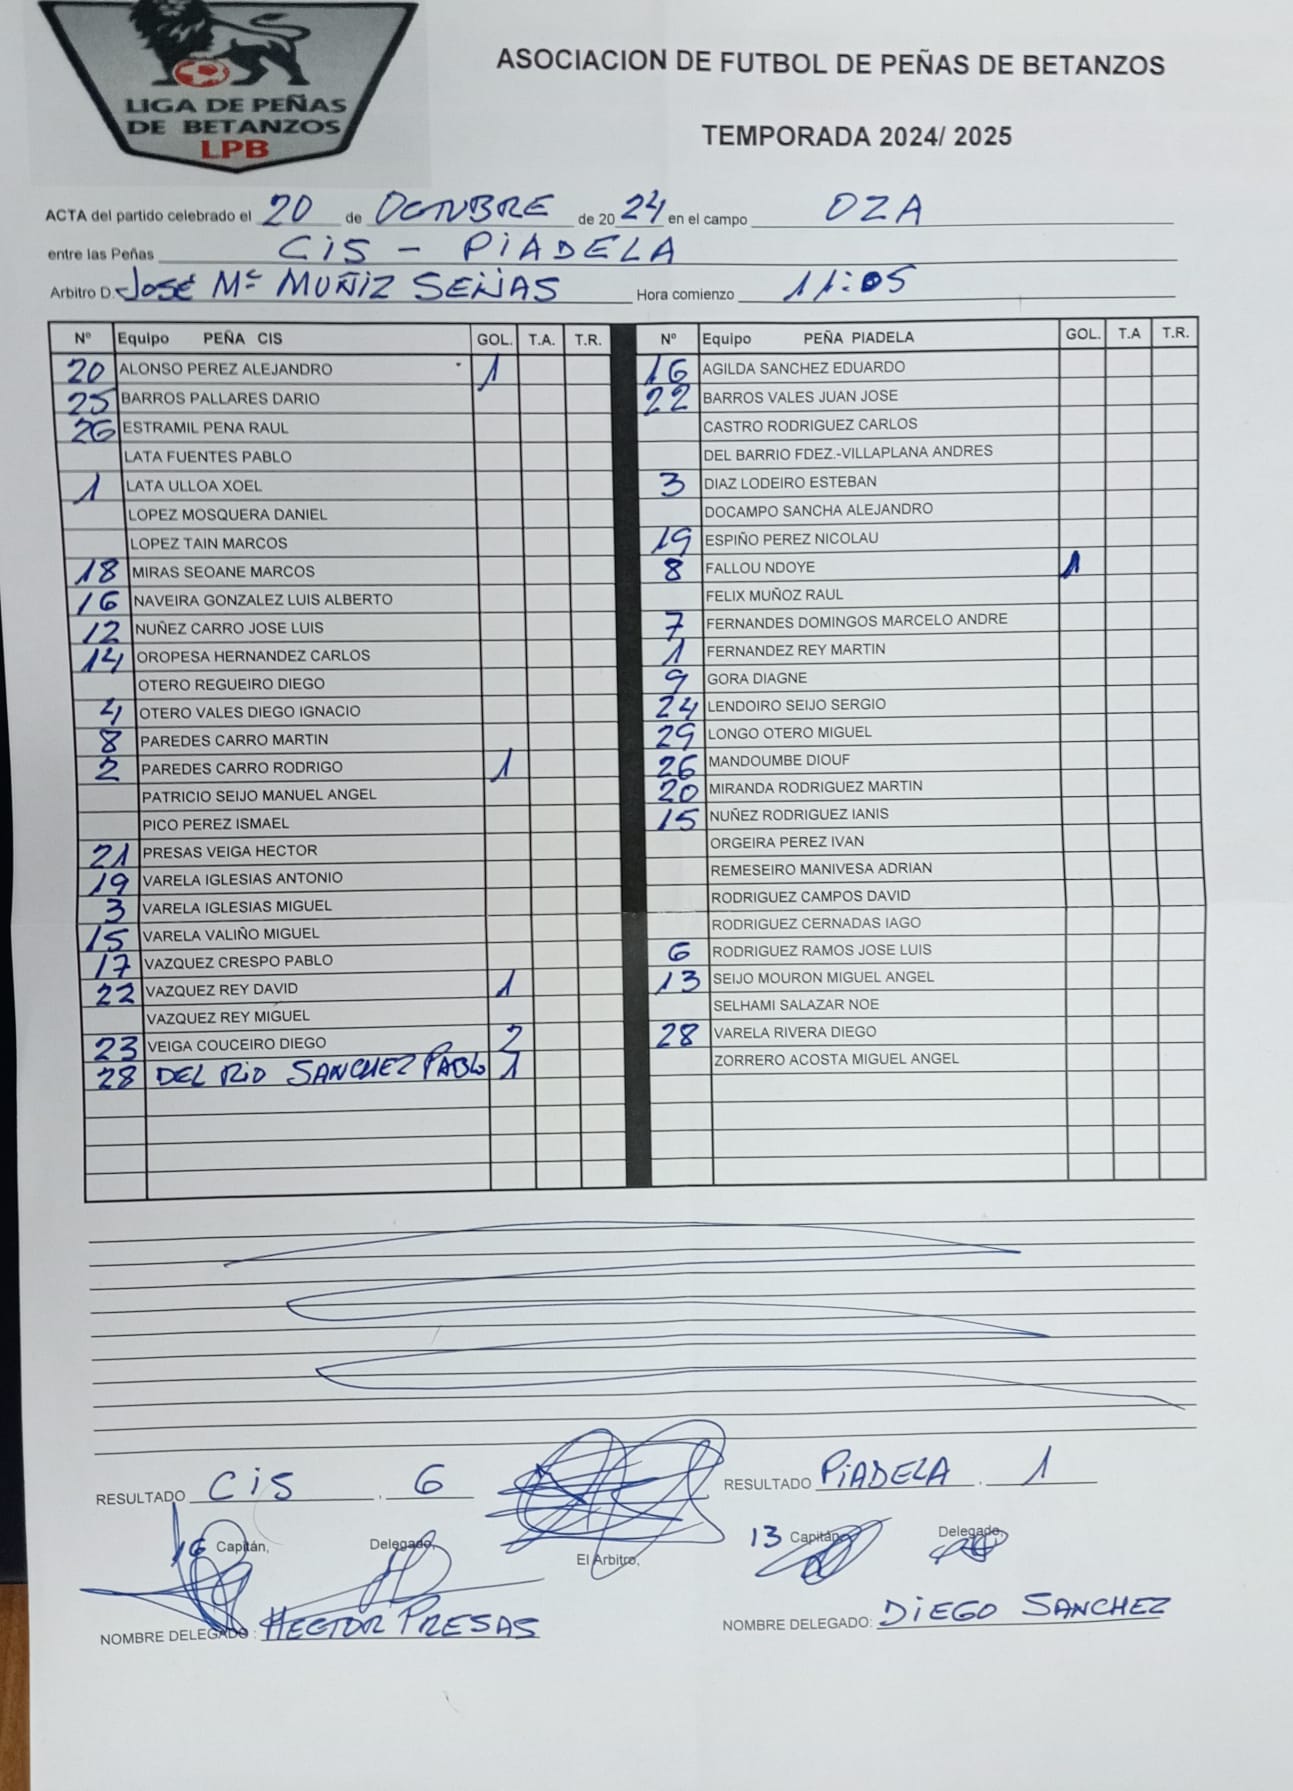 LIGA DE PEÑAS
DE BETANZOS
LPB
ASOCIACION DE FUTBOL DE PEÑAS DE BETANZOS
TEMPORADA 2024/ 2025
ACTA del partido celebrado el 20 de OCTUBRE de 20 24 en el campo OZA
entre las Peñas CIS - PIADELA
Arbitro D. José Mª MUÑIZ SEÑAS Hora comienzo 11:05
Nº Equipo PEÑA CIS GOL. T.A. T.R. Nº Equipo PEÑA PIADELA GOL. T.A T.R.
20 ALONSO PEREZ ALEJANDRO 1 16 AGILDA SANCHEZ EDUARDO
25 BARROS PALLARES DARIO 22 BARROS VALES JUAN JOSE
26 ESTRAMIL PENA RAUL CASTRO RODRIGUEZ CARLOS
LATA FUENTES PABLO DEL BARRIO FDEZ.-VILLAPLANA ANDRES
1 LATA ULLOA XOEL 3 DIAZ LODEIRO ESTEBAN
LOPEZ MOSQUERA DANIEL DOCAMPO SANCHA ALEJANDRO
LOPEZ TAIN MARCOS 19 ESPIÑO PEREZ NICOLAU
18 MIRAS SEOANE MARCOS 8 FALLOU NDOYE 1
16 NAVEIRA GONZALEZ LUIS ALBERTO FELIX MUÑOZ RAUL
12 NUÑEZ CARRO JOSE LUIS 7 FERNANDES DOMINGOS MARCELO ANDRE
14 OROPESA HERNANDEZ CARLOS 1 FERNANDEZ REY MARTIN
OTERO REGUEIRO DIEGO 9 GORA DIAGNE
4 OTERO VALES DIEGO IGNACIO 24 LENDOIRO SEIJO SERGIO
8 PAREDES CARRO MARTIN 29 LONGO OTERO MIGUEL
2 PAREDES CARRO RODRIGO 1 26 MANDOUMBE DIOUF
PATRICIO SEIJO MANUEL ANGEL 20 MIRANDA RODRIGUEZ MARTIN
PICO PEREZ ISMAEL 15 NUÑEZ RODRIGUEZ IANIS
21 PRESAS VEIGA HECTOR ORGEIRA PEREZ IVAN
19 VARELA IGLESIAS ANTONIO REMESEIRO MANIVESA ADRIAN
3 VARELA IGLESIAS MIGUEL RODRIGUEZ CAMPOS DAVID
15 VARELA VALIÑO MIGUEL RODRIGUEZ CERNADAS IAGO
17 VAZQUEZ CRESPO PABLO 6 RODRIGUEZ RAMOS JOSE LUIS
22 VAZQUEZ REY DAVID 1 13 SEIJO MOURON MIGUEL ANGEL
VAZQUEZ REY MIGUEL SELHAMI SALAZAR NOE
23 VEIGA COUCEIRO DIEGO 2 28 VARELA RIVERA DIEGO
28 DEL RIO SANCHEZ PABLO 1 ZORRERO ACOSTA MIGUEL ANGEL
RESULTADO CIS . 6 RESULTADO PIADELA . 1
16 Capitán, Delegado, El Arbitro, 13 Capitán, Delegado,
NOMBRE DELEGADO : HECTOR PRESAS NOMBRE DELEGADO: DIEGO SANCHEZ